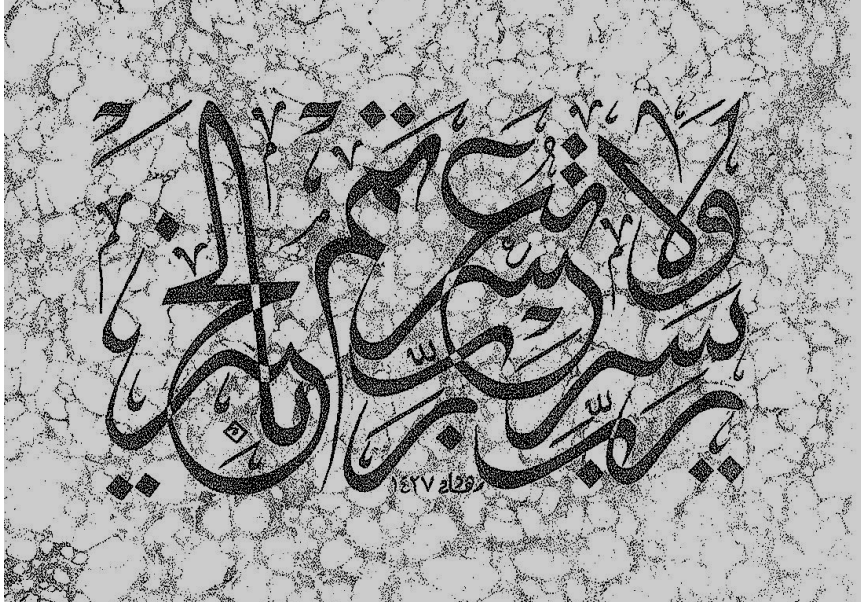 رب يسر ولا تعسر رب تمم بالخير
١٤٢٧